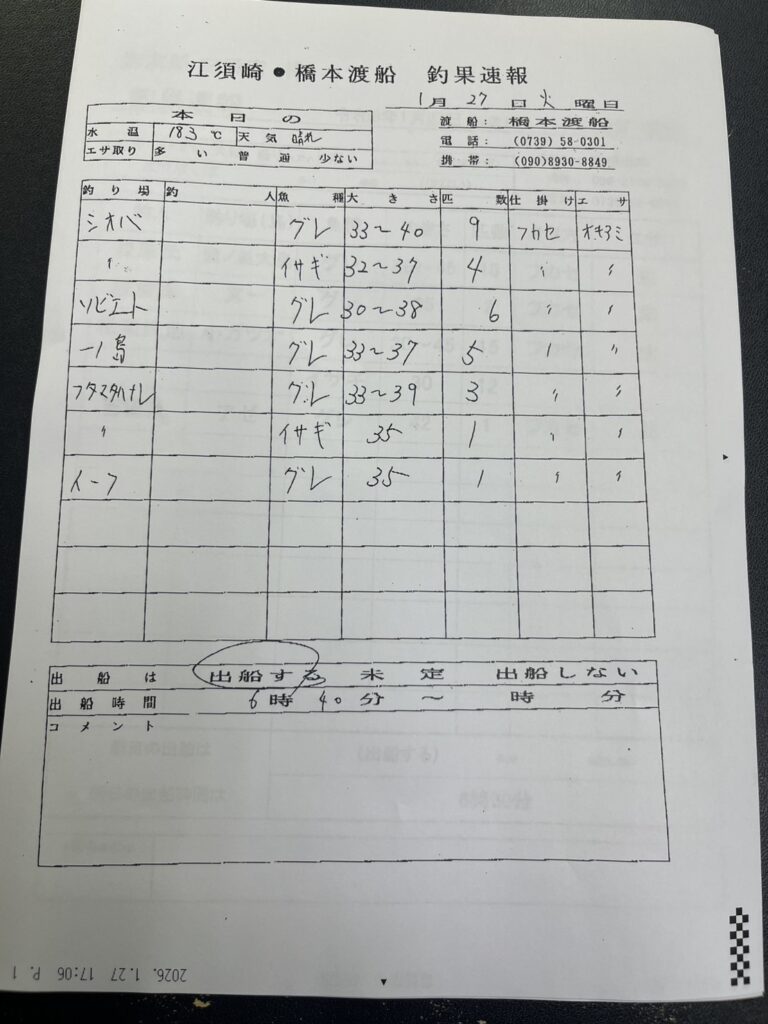 江須崎●橋本渡船 釣果速報
1月 27 日 火 曜日
本日の
水温 18.3 ℃ 天気 晴れ
エサ取り 多い 普通 少ない
渡船: 橋本渡船
電話: (0739) 58-0301
携帯: (090)8930-8849
釣り場 釣人 魚種 大きさ 匹数 仕掛け エサ
シオバ グレ 33~40 9 フカセ オキアミ
〃 イサギ 32~37 4 〃 〃
ソビエト グレ 30~38 6 〃 〃
一ノ島 グレ 33~37 5 〃 〃
フタマタハナレ グレ 33~39 3 〃 〃
〃 イサギ 35 1 〃 〃
イーフ グレ 35 1 〃 〃
出船は 出船する 未定 出船しない
出船時間 6時 40分 ~ 時 分
コメント
2026. 1.27 17:06 P. 1